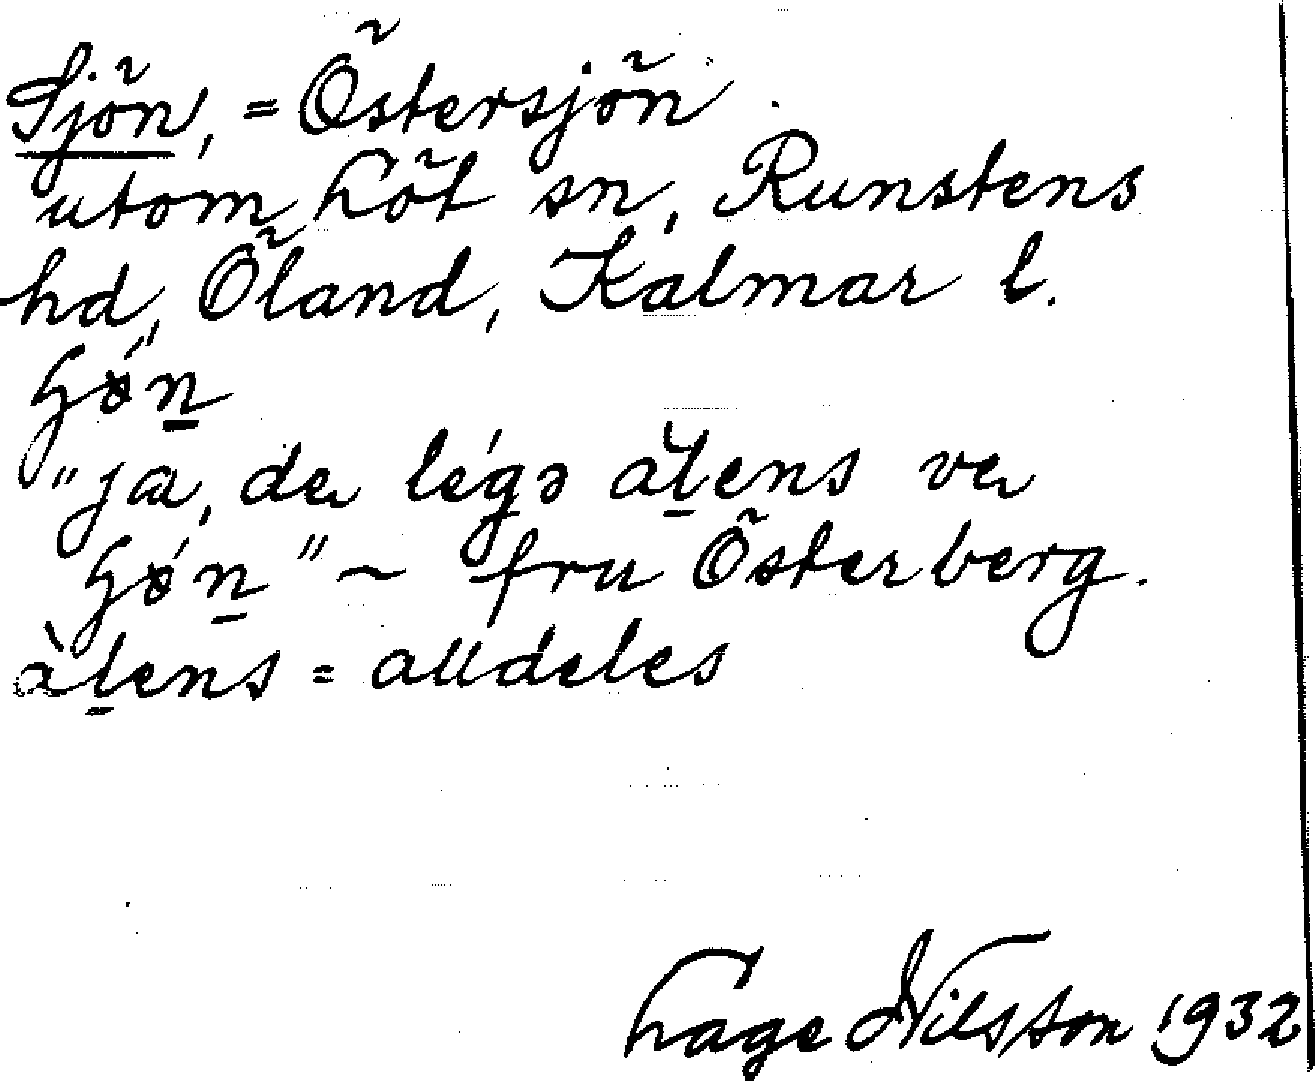 Sjön, = Östersjön
utom Löt sn, Runstens
hd, Öland, Kalmar l.
"ja, de légə aḻens ve
" ~ fru Österberg.
àḻens = alldeles
Lage Nilsson 1932